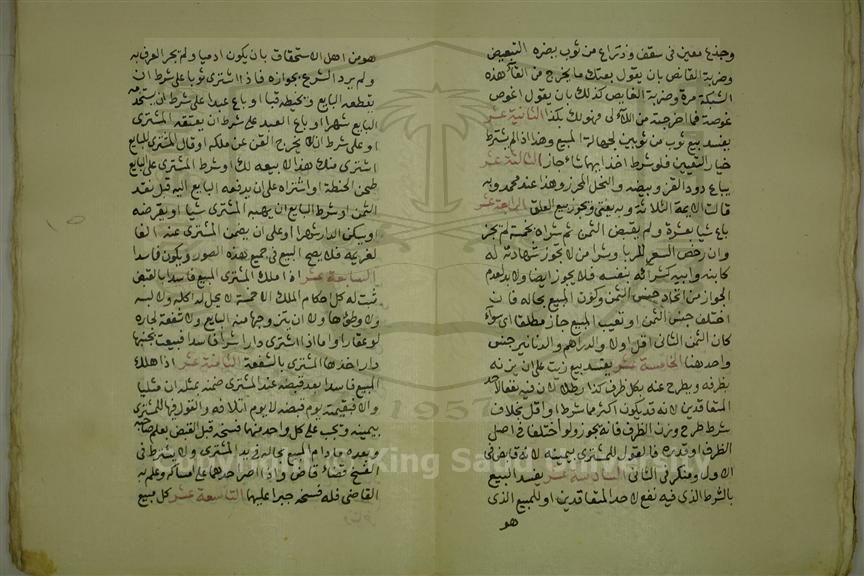 وجذع معين فى سقف وذراع من ثوب يضره التبعيض
وضربة القانص بان يقول بعتك ما يخرج من القاء هذه
الشبكة مرة وضربة الغايص كذلك بان يقول اغوص
غوصة فما اخرجته من اللآلى فهو لك بكذا الثانية عشر
يفسد بيع ثوب من ثوبين لجهالة المبيع وهذا اذا لم يشترط
خيار التعيين فلو شرط اخذ ايهما شاء جاز الثالثة عشر
يباع دود القز وبيضه والنحل المحرز وهذا عند محمد وبه
قالت الايمة الثلاثة وبه يفتى ويجوز بيع العلق الرابعة عشر
باع شيا بعشرة ولم يقبض الثمن ثم شراه بخمسة لم يجز
وان رخص السعر للربا وشرا من لا يجوز شهادته له
كابنه وابيه كشرائه بنفسه فلا يجوز ايضا ولا بد لعدم
الجواز من اتحاد جنس الثمن وكون المبيع بحاله فان
اختلف جنس الثمن او تعيب المبيع جاز مطلقا اى سواء
كان الثمن الثانى اقل او لا والدراهم والدنانير جنس
واحد هنا الخامسة عشر يفسد بيع زيت على ان يزنه
بظرفه ويطرح عنه بكل ظرف كذا رطلا لان فيه نفعا لاحد
المتعاقدين لانه قد يكون اكثر مما شرط او اقل بخلاف
شرط طرح وزن الظرف فانه يجوز ولو اختلفا فى اصل
الظرف او قدره فالقول للمشترى بيمينه لانه قابض فى
الاول ومنكر فى الثانى السادسة عشر يفسد البيع
بالشرط الذى فيه نفع لاحد المتعاقدين او للمبيع الذى
هو
هو من اهل الاستحقاق بان يكون ادميا ولم يجر العرف به
ولم يرد الشرع بجوازه فاذا اشترى ثوبا على شرط ان
يقطعه البايع ويخيطه قبا او باع عبدا على شرط ان يستخدمه
البايع شهرا او باع العبد على شرط ان يعتقه المشترى
او على شرط ان لا يخرج القن عن ملكه او قال المشترى للبايع
اشترى منك هذا لابيعه لك او شرط المشترى على البايع
طحن الحنطة او اشتراه على ان يدفعه البايع اليه قبل نقد
الثمن او شرط البايع ان يهبه المشترى شيا او يقرضه
او يسكن الدار شهرا او على ان يضمن المشترى عنه الفا
لغريمه فلا يصح البيع فى جميع هذه الصور ويكون فاسدا
السابعة عشر اذا ملك المشترى المبيع فاسدا بالقبض
ثبت له كل احكام الملك الا خمسة لا يحل له اكله ولا لبسه
ولا وطئها ولا ان يتزوجها منه البايع ولا شفعة لجاره
لو عقارا واما اذا اشترى دارا شراء فاسدا فبيعت بجنبها
دار اخذها المشترى بالشفعة الثامنة عشر اذا هلك
المبيع فاسدا بعد قبضه عند المشترى ضمنه بمثله ان مثليا
والا فبقيمته يوم قبضه لا يوم اتلافه والقول فيها للمشترى
بيمينه ويجب على كل واحد منهما فسخه قبل القبض بعلم صاحبه
وبعده ما دام المبيع بحاله فى يد المشترى ولا يشترط فى
الفسخ قضاء قاض واذا اصر احدهما على امساكه وعلم به
القاضى فله فسخه جبرا عليهما التاسعة عشر كل مبيع
1957
King Saud University